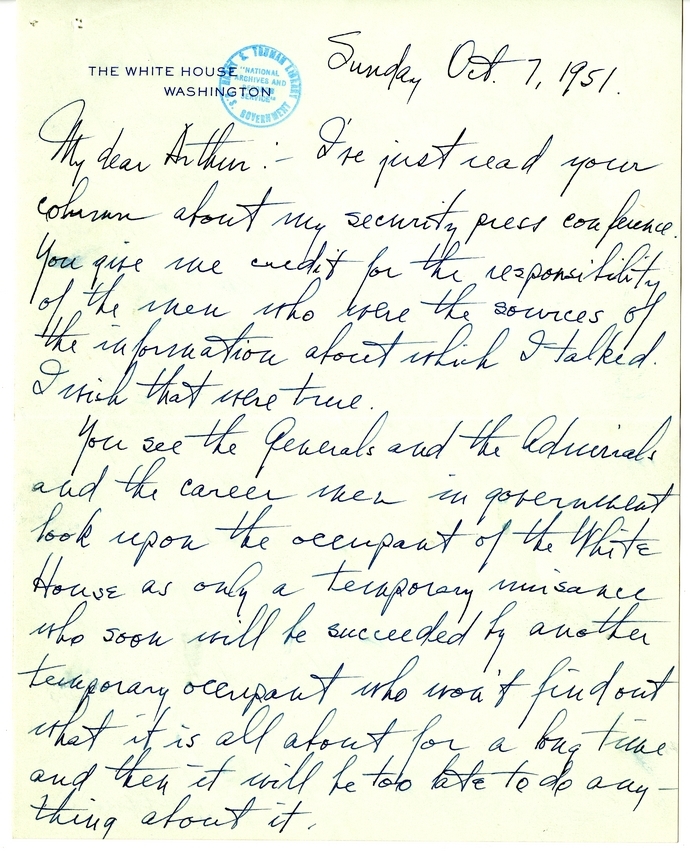 THE WHITE HOUSE
WASHINGTON
HARRY S. TRUMAN LIBRARY
"NATIONAL
ARCHIVES AND
SERVICE"
U.S. GOVERNMENT
Sunday Oct. 7, 1951.
My dear Arthur:- I've just read your
column about my security press conference.
You give me credit for the responsibility
of the men who were the sources of
the information about which I talked.
I wish that were true.
You see the Generals and the Admirals
and the career men in government
look upon the occupant of the White
House as only a temporary nuisance
who soon will be succeeded by another
temporary occupant who won't find out
what it is all about for a long time
and then it will be too late to do any-
thing about it.